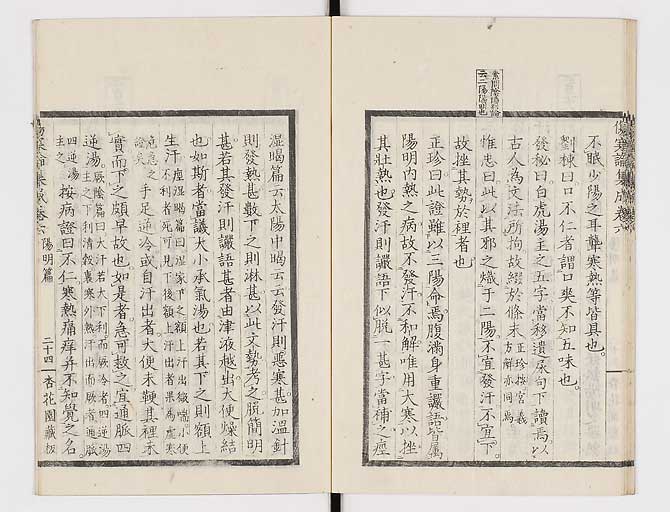 素問陰陽別論
云二陽陽明也
不眠少陽之耳聾寒熱等皆具也
劉棟曰口不仁者謂口爽不知五味也
發秘曰白虎湯主之五字當移遺尿句下讀焉以
古人為文法所拘故綴於條末
正珍按官義
方解亦同焉
惟忠曰此以其邪之熾于二陽不宜發汗不宜下
故挫其勢於裡者也
正珍曰此證雖以三陽命焉腹滿身重讝語皆屬
陽明内熱之病故不發汗不和解唯用大寒以挫
其壯熱也發汗則讝語下似脱一甚字當補之痙
濕暍篇云太陽中暍云云發汗則惡寒甚加溫針
則發熱甚數下之則淋甚以此文勢考之
簡明
甚若其發汗則讝語甚者由津液越出大便燥結
也如斯者當議大小承氣湯也若其下之則額上
生汗
痙湿暍篇曰湿家下之額上汗出微喘小便
不利者死可見下後額上汗出者果為虚寒
危急之
證矣
手足逆冷或自汗出者大便未鞕其裡未
實而下之頗早故也如是者急可救之宜通脈四
逆湯
厥陰篇曰大汗若大下利而厥冷者四逆湯
主之下利清穀裏寒外熱汗出而厥者通脈
四逆湯
主之
按病證曰不仁寒熱痛痒并不知覺之名
傷寒論集成卷六
陽明篇
二十四
杏花園藏板
傷寒論集成卷六